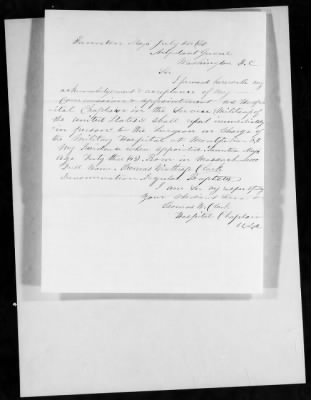 Taunton Mass July 20 / 64
Adjutant General
Washington D.C.
Sir
I forward herewith my
acknowledgment & acceptance of my
Commission & appointment as Hosp-
ital Chaplain in the Service Military of
the United States & shall report immediately
in person to the Surgeon in charge of
the Military Hospital at
My Residence when appointed Taunton Mass
Age forty three (43). Born in Massachusetts
Full Name. Thomas Winthrop Clark
Denomination Regular Baptist
I am Sir very respectfully
Your Obedient Servant
Thomas W. Clark
Hospital Chaplain
U.S.A.